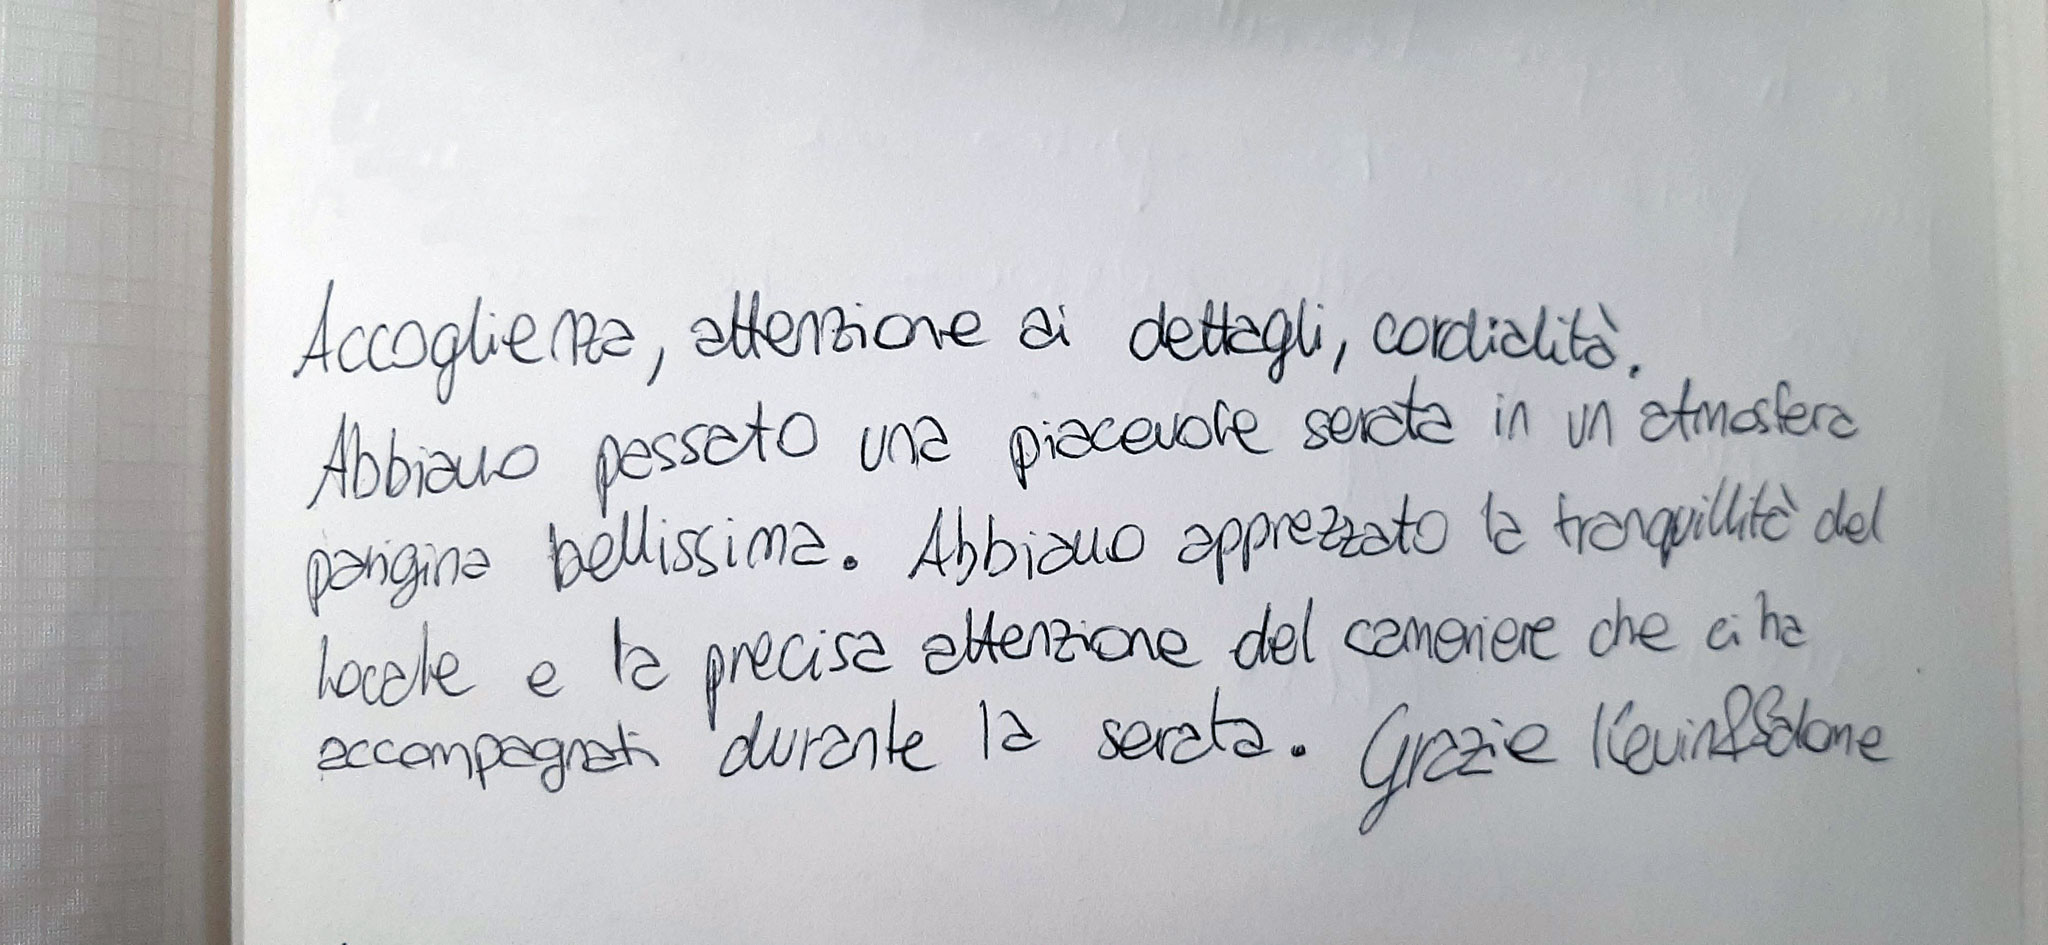 Accoglienza, attenzione ai dettagli, cordialità.
Abbiamo passato una piacevole serata in un atmosfera
parigina bellissima. Abbiamo apprezzato la tranquillità del
locale e la precisa attenzione del cameriere che ci ha
accompagnati durante la serata. Grazie Kevin&Salome